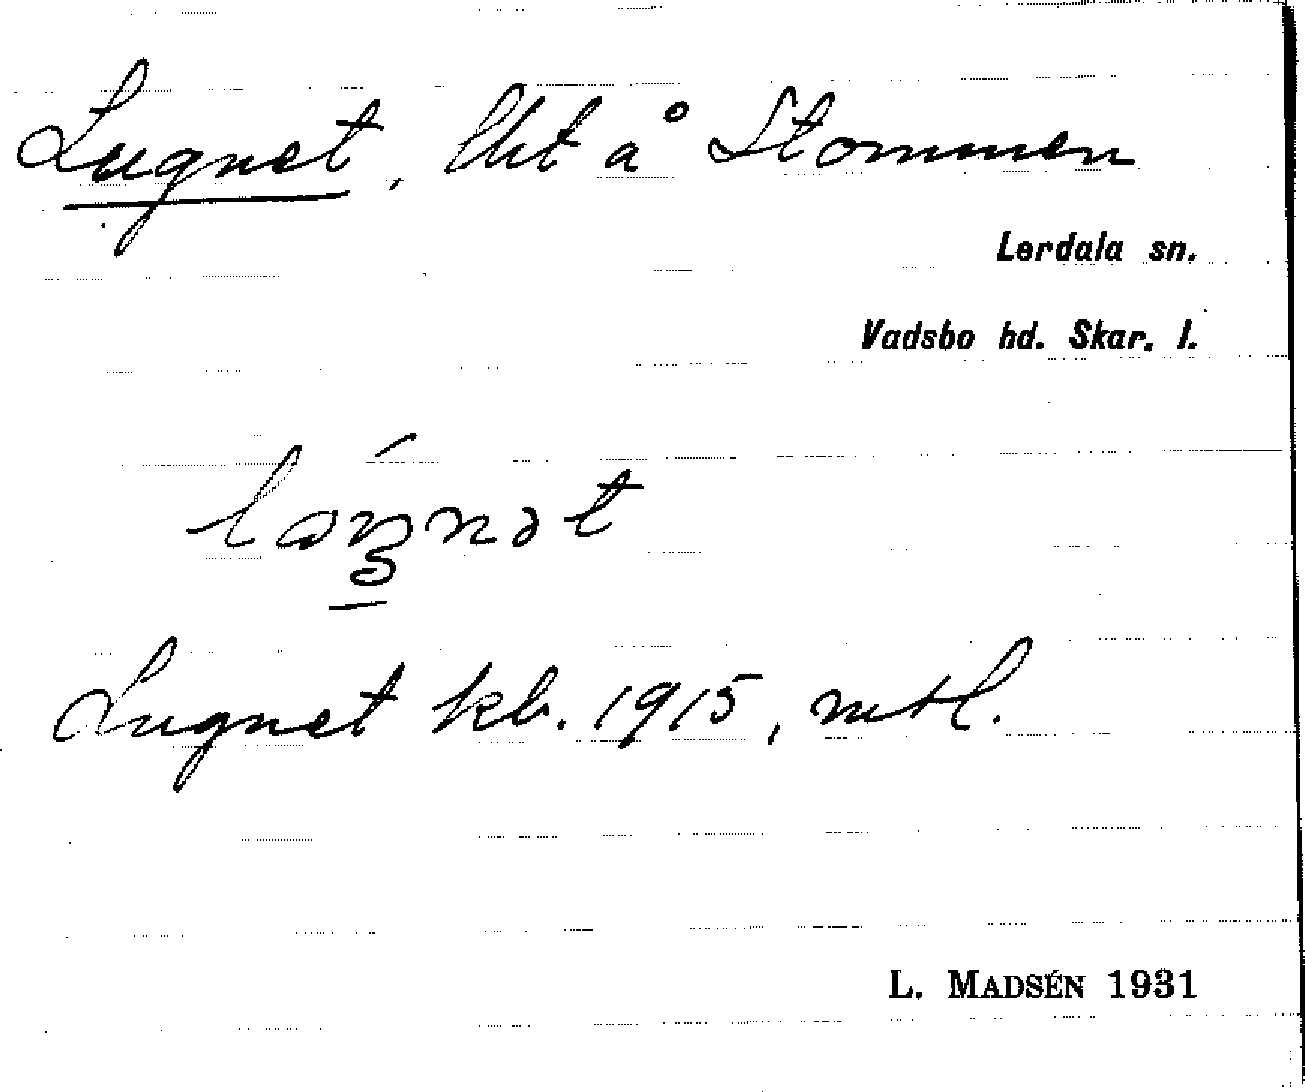 Lugnet, lht å Stommen
Lerdala sn.
Vadsbo hd. Skar. l.
Lugnet kb. 1915, mtl.
L. MADSÉN 1931